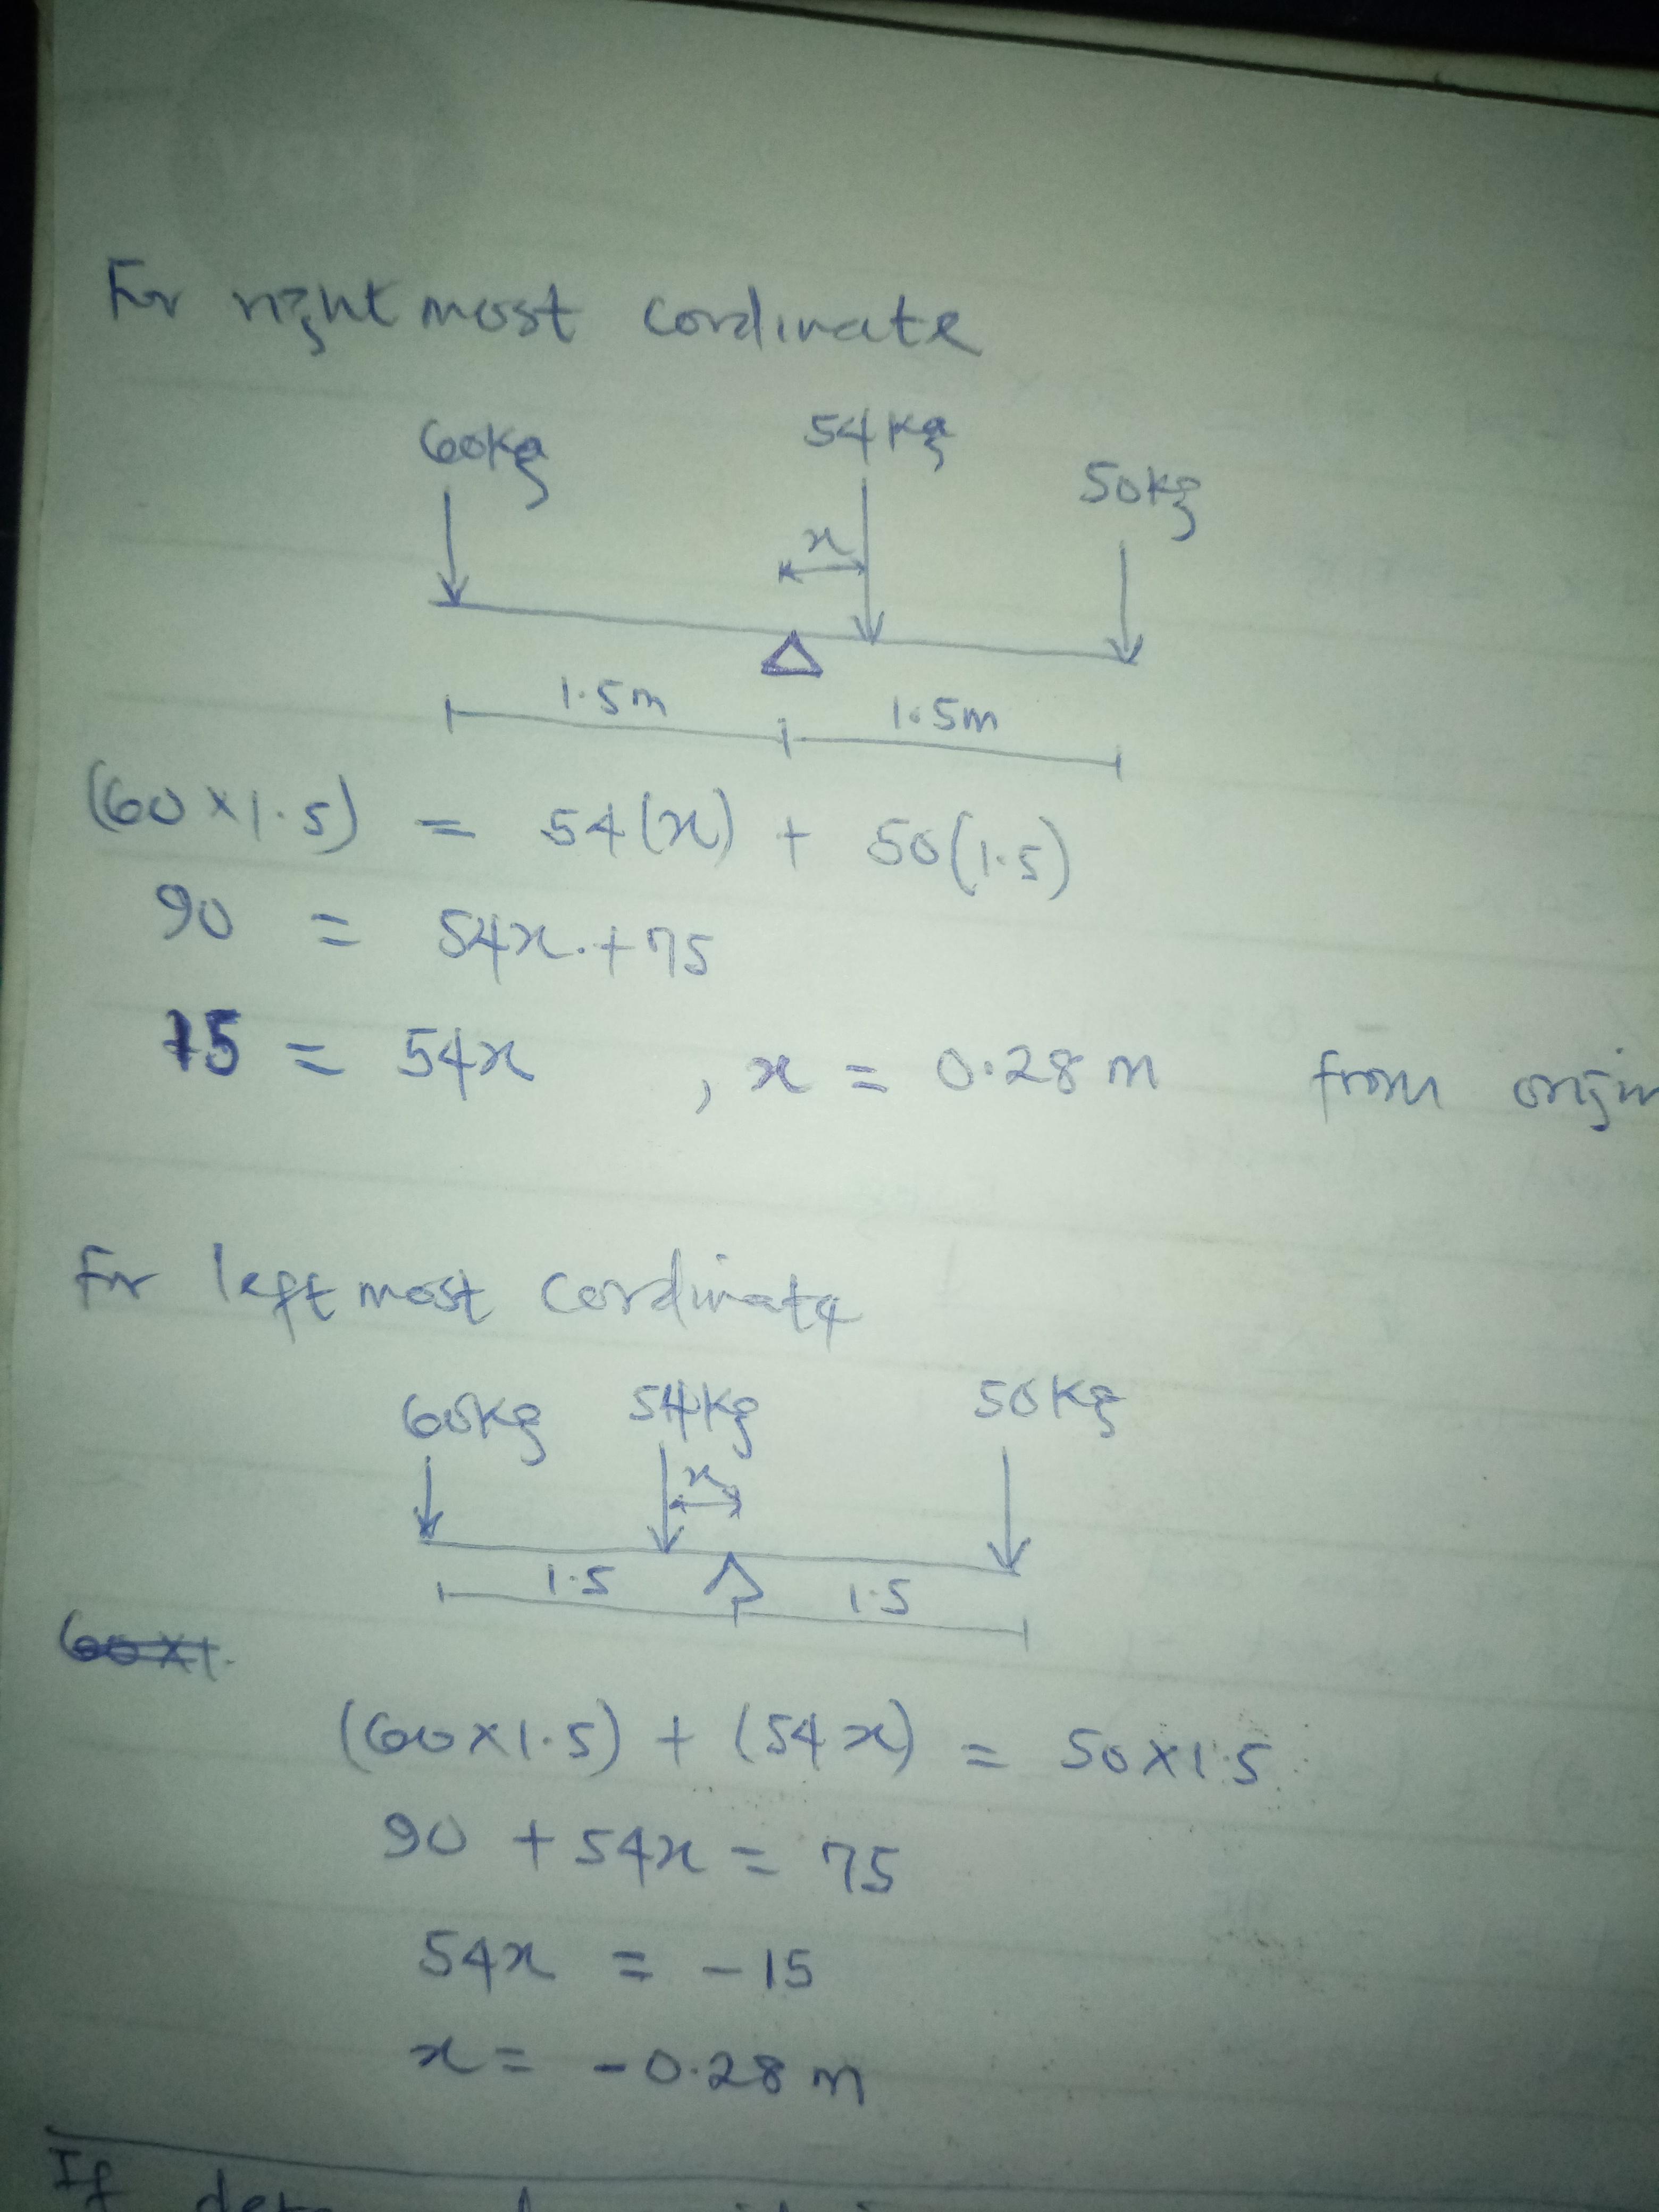 For rightmost cordinate
60kg 54kg 50kg
x
1.5m 1.5m
(60×1.5) = 54(x) + 50(1.5)
90 = 54x + 75
15 = 54x , x = 0.28m from origin
For leftmost cordinate
60kg 54kg 50kg
x
1.5 1.5
60×1.
(60×1.5) + (54x) = 50×1.5
90 + 54x = 75
54x = -15
x = -0.28m
If